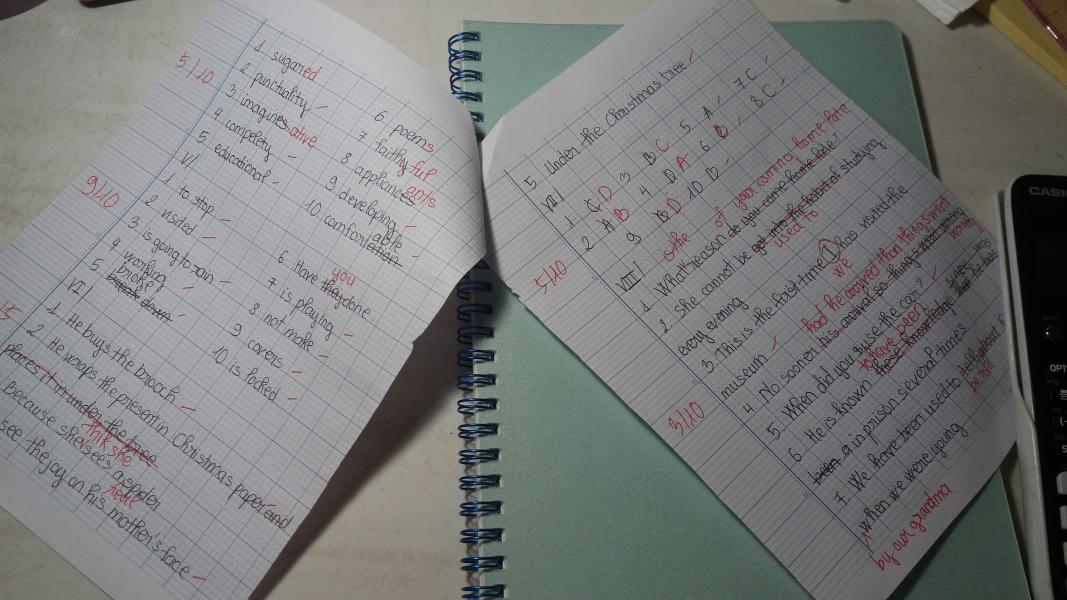 5/10
1. sugared
2 punctuality
3 imaginesative
4 competety
5. educational
6 poems
7 faithyful
8 appliances
9 developing
10 comfortation able
VI
9/10
1. to stop
2 visited
3. is going to rain
4 working
5. break down broke
6 Have they done you
7 is playing
8 not make
9. covers
10 is locked
VI/
15
1. He buys the brooch
2. He wraps the present in Christmas paper and
places it in under the tree
because she sees a spider
think she
see the joy on his mother's face
5 Under the Christmas tree
VII
1. C D 3 B C 5 A 7 C
2 A B 4 D A 6 B 8 C
9 B D 10 B
5/10
VIII
the of your coming home late
1. What reason do you come home late?
2. She cannot be get into the habit of studying
used to
every evening
3. This is the first time I has visited the
we
museum
had he arrived than things went
4 No sooner his arrival so things
5. When did you use the car?
to have been
6. He is known these knowledge
been a in prison several times
3/10
7. We have been used to tell about
When we were young
by our grandma
CASIO
OPT